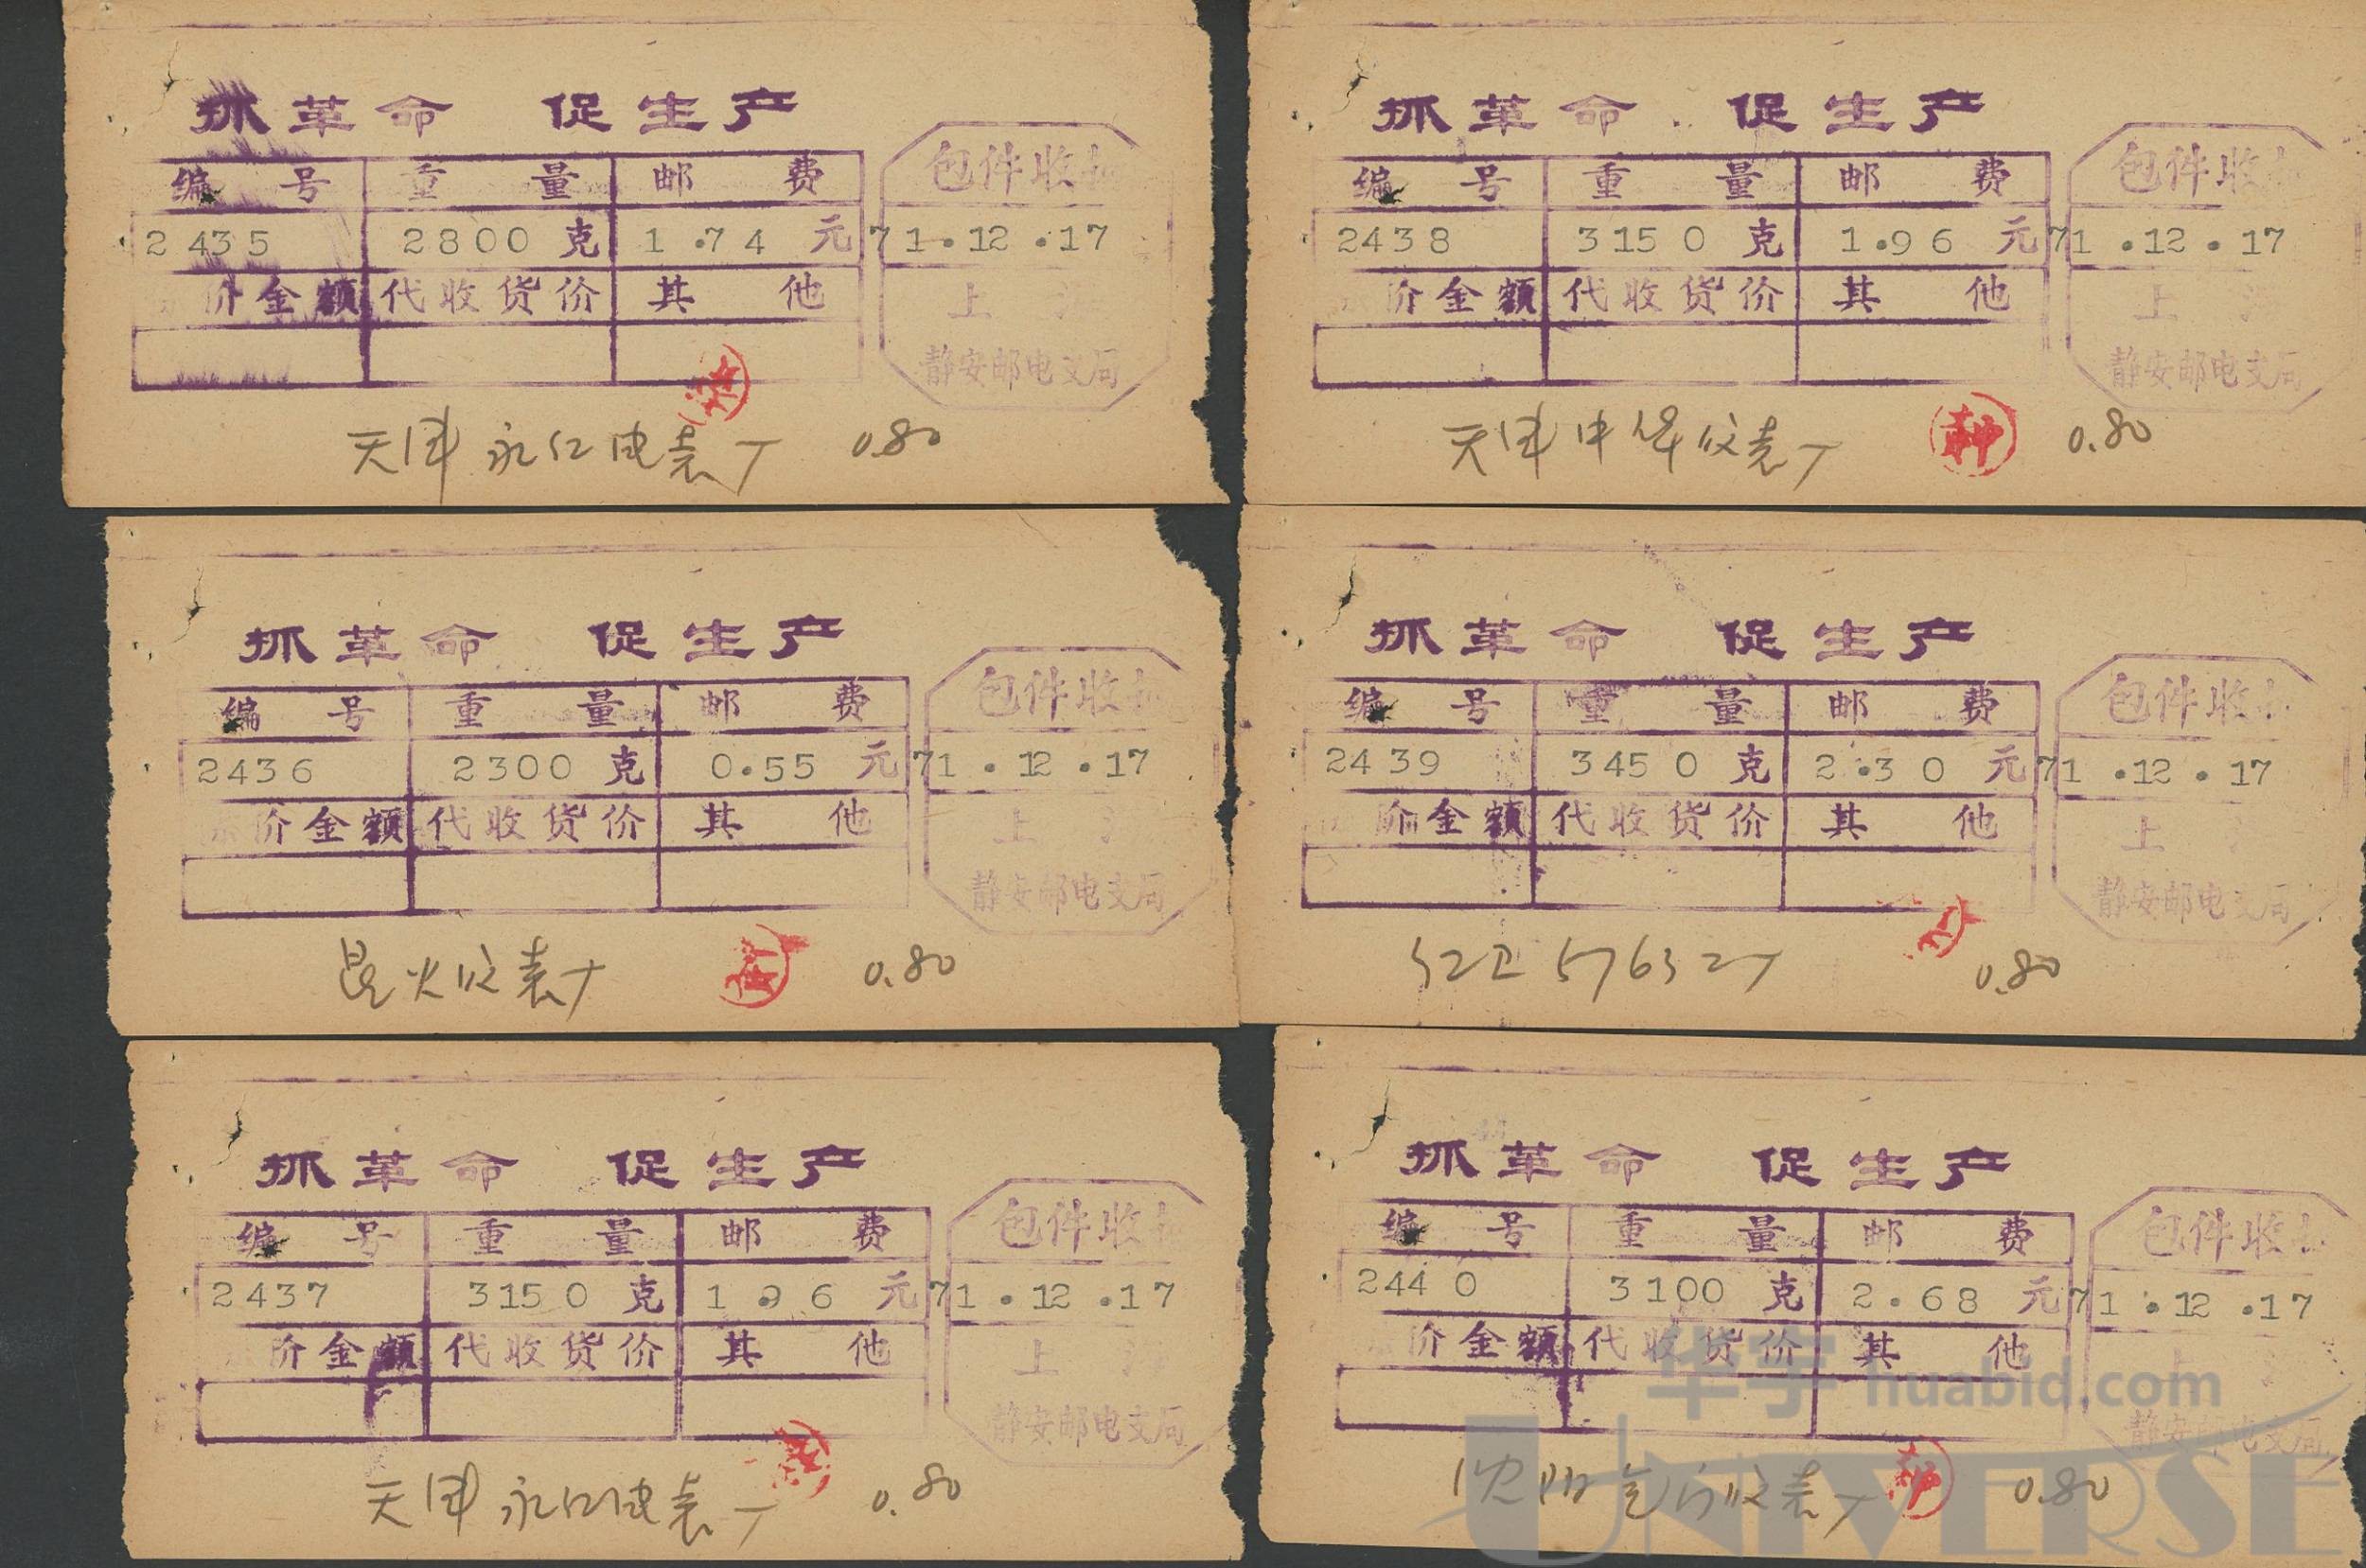 抓革命 促生产
编号 重量 邮费 包件收
2435 2800克 1.74元 71.12.17
价金额 代收货价 其他 上
静安邮电支局
天津永红电表厂 0.80
抓革命 促生产
编号 重量 邮费 包件收
2438 3150克 1.96元 71.12.17
价金额 代收货价 其他 上
静安邮电支局
天津中环仪表厂 0.80
抓革命 促生产
编号 重量 邮费 包件收
2436 2300克 0.55元 71.12.17
价金额 代收货价 其他 上
静安邮电支局
仪表厂 0.80
抓革命 促生产
编号 重量 邮费 包件收
2439 3450克 2.30元 71.12.17
价金额 代收货价 其他 上
静安邮电支局
0.80
抓革命 促生产
编号 重量 邮费 包件收
2437 3150克 1.96元 71.12.17
价金额 代收货价 其他 上
静安邮电支局
天津永红电表厂 0.80
抓革命 促生产
编号 重量 邮费 包件收
2440 3100克 2.68元 71.12.17
价金额 代收货价 其他
静安邮电支局
沈阳 仪表厂 0.80
华宇 huabid.com
UNIVERSE